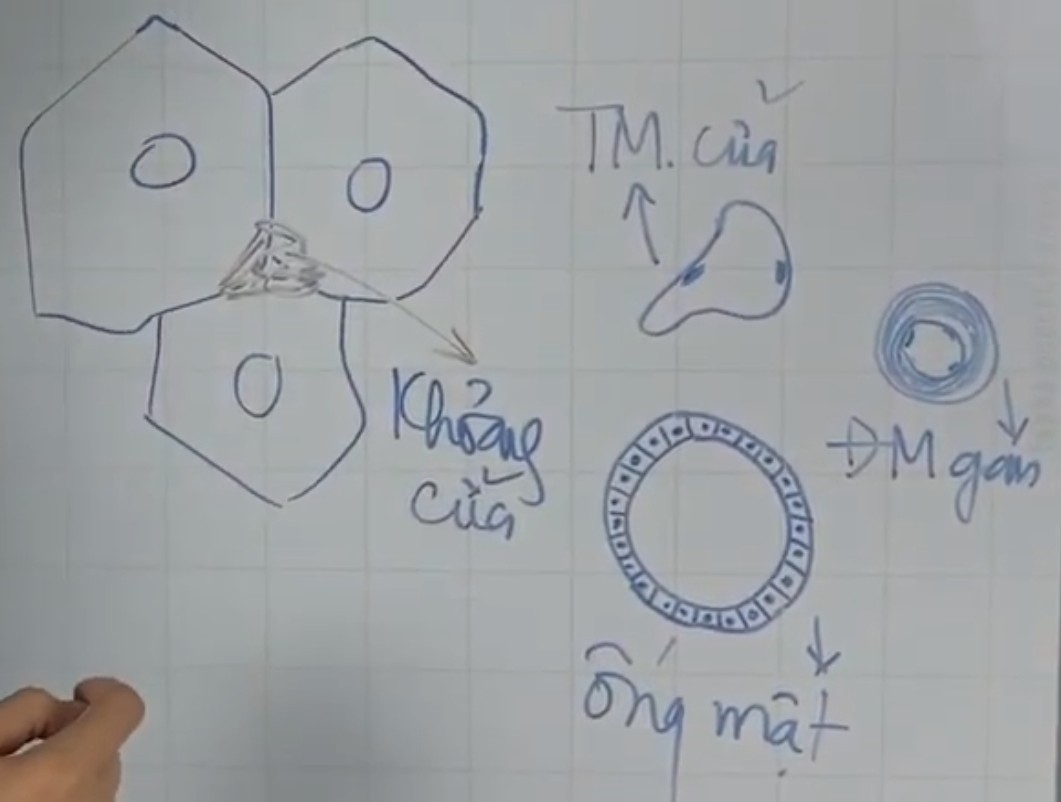 TM. cửa
Khoảng
cửa
ĐM gan
ống mật